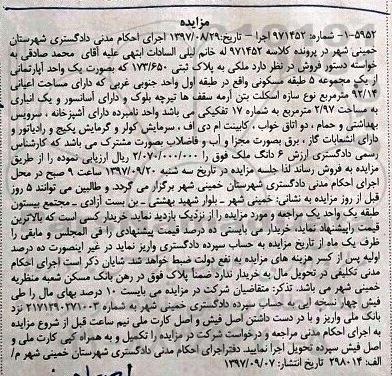 مزایده
۱-۵۹۵۲- شماره: ۹۷۱۴۵۲ اجرا – تاریخ: ۱۳۹۷/۰۸/۲۹ اجرای احکام مدنی دادگستری شهرستان
خمینی شهر در پرونده کلاسه ۹۷۱۴۵۲ له خانم لیلی السادات ابتهی علیه آقای محمد صادقی به
خواسته دستور فروش در نظر دارد ملکی به پلاک ثبتی ۱۷۳/۶۵۰ که بصورت یک واحد آپارتمانی
از یک مجموعه ۵ طبقه مسکونی واقع در طبقه اول واحد جنوبی غربی که دارای مساحت اعیانی
۹۲/۱۴ مترمربع نوع سازه اسکلت بتن آرمه سقف ها تیرچه بلوک و دارای آسانسور و یک انباری
به مساحت ۲/۹۷ مترمربع به شماره ۱۷ تفکیکی می باشد واحد نامبرده دارای آشپزخانه ، سرویس
بهداشتی و حمام ، دو اتاق خواب ، کابینت ام دی اف ، سرمایش کولر و گرمایش پکیج و رادیاتور و
دارای انشعابات گاز ، برق بصورت مجزا و آب و فاضلاب بصورت مشترک می باشد که کارشناس
رسمی دادگستری ارزش ۶ دانگ ملک فوق را ۲/۰۷۰/۰۰۰/۰۰۰ ریال ارزیابی نموده را از طریق
مزایده به فروش رساند لذا جلسه مزایده در تاریخ سه شنبه ۱۳۹۷/۰۹/۲۰ ساعت ۹ صبح در محل
اجرای احکام مدنی دادگستری شهرستان خمینی شهر برگزار می گردد. و طالبین می توانند ۵ روز
قبل از روز مزایده به نشانی: خمینی شهر – بلوار شهید بهشتی – بن بست آزادی – مجتمع بیستون
طبقه یک واحد یک مراجعه و مورد مزایده را از نزدیک بازدید نماید خریدار کسی است که بالاترین
قیمت راپیشنهاد نماید، خریدار می بایستی ده درصد قیمت پیشنهادی را فی المجلس و مابقی را
ظرف یک ماه از تاریخ مزایده به حساب سپرده دادگستری واریز نماید در غیر اینصورت ده درصد
اولیه پس از کسر هزینه های مزایده به نفع دولت ضبط خواهد شد. شایان ذکر است اجرای احکام
مدنی تکلیفی در تحویل مال به خریدار ندارد ضمناً پلاک فوق در رهن بانک مسکن شعبه منظریه
خمینی شهر می باشد. تذکر: متقاضیان شرکت در مزایده می بایست ۱۰ درصد بهای مال را طی
فیش چهار نسخه ایی به حساب سپرده دادگستری خمینی شهر به شماره ۲۱۷۱۲۹۰۲۷۱۰۰۳ نزد
بانک ملی واریز و با در دست داشتن اصل فیش و اصل کارت ملی نیم ساعت قبل از شروع مزایده
به اجرای احکام مدنی مراجعه و درخواست شرکت در مزایده را تکمیل و به همراه کپی کارت ملی و
اصل فیش سپرده تحویل اجرا نمایید. دفتراجرای احکام مدنی دادگستری شهرستان خمینی شهر م/
الف: ۲۹۸۰۱۴ تاریخ انتشار: ۱۳۹۷/۰۹/۰۷